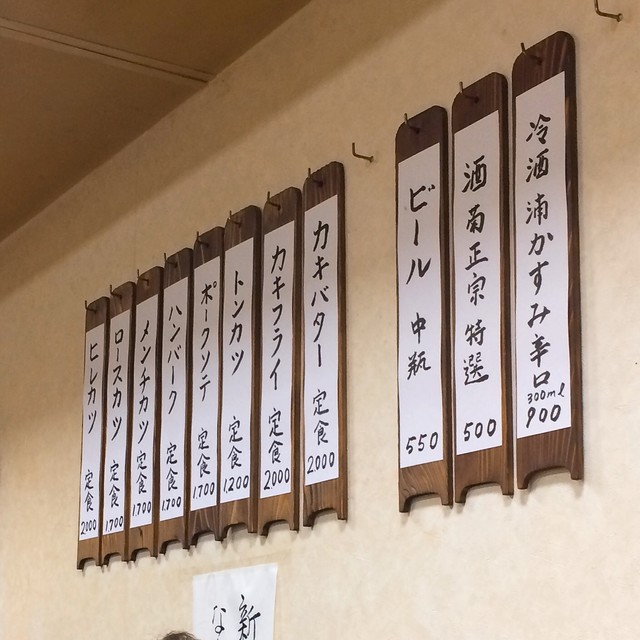 冷酒 浦かすみ辛口 300ml 900
酒 菊正宗 特選 500
ビール 中瓶 550
カキバター 定食 2000
カキフライ 定食 2000
トンカツ 定食 1,200
ポークソテ 定食 1,700
ハンバーク 定食 1,700
メンチカツ 定食 1,700
ロースカツ 定食 1,700
ヒレカツ 定食 2000
新
な